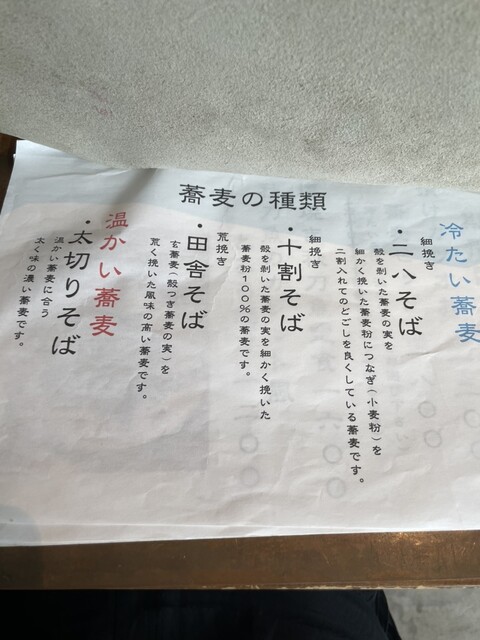 蕎麦の種類
冷たい蕎麦
細挽き
・二八そば
殻を剥いた蕎麦の実を
細かく挽いた蕎麦粉につなぎ(小麦粉)を
二割入れてのどごしを良くしている蕎麦です。
細挽き
・十割そば
殻を剥いた蕎麦の実を細かく挽いた
蕎麦粉100%の蕎麦です。
荒挽き
・田舎そば
玄蕎麦(殻つき蕎麦の実)を
荒く挽いた風味の高い蕎麦です。
温かい蕎麦
・太切りそば
温かい蕎麦に合う
太く味の濃い蕎麦です。